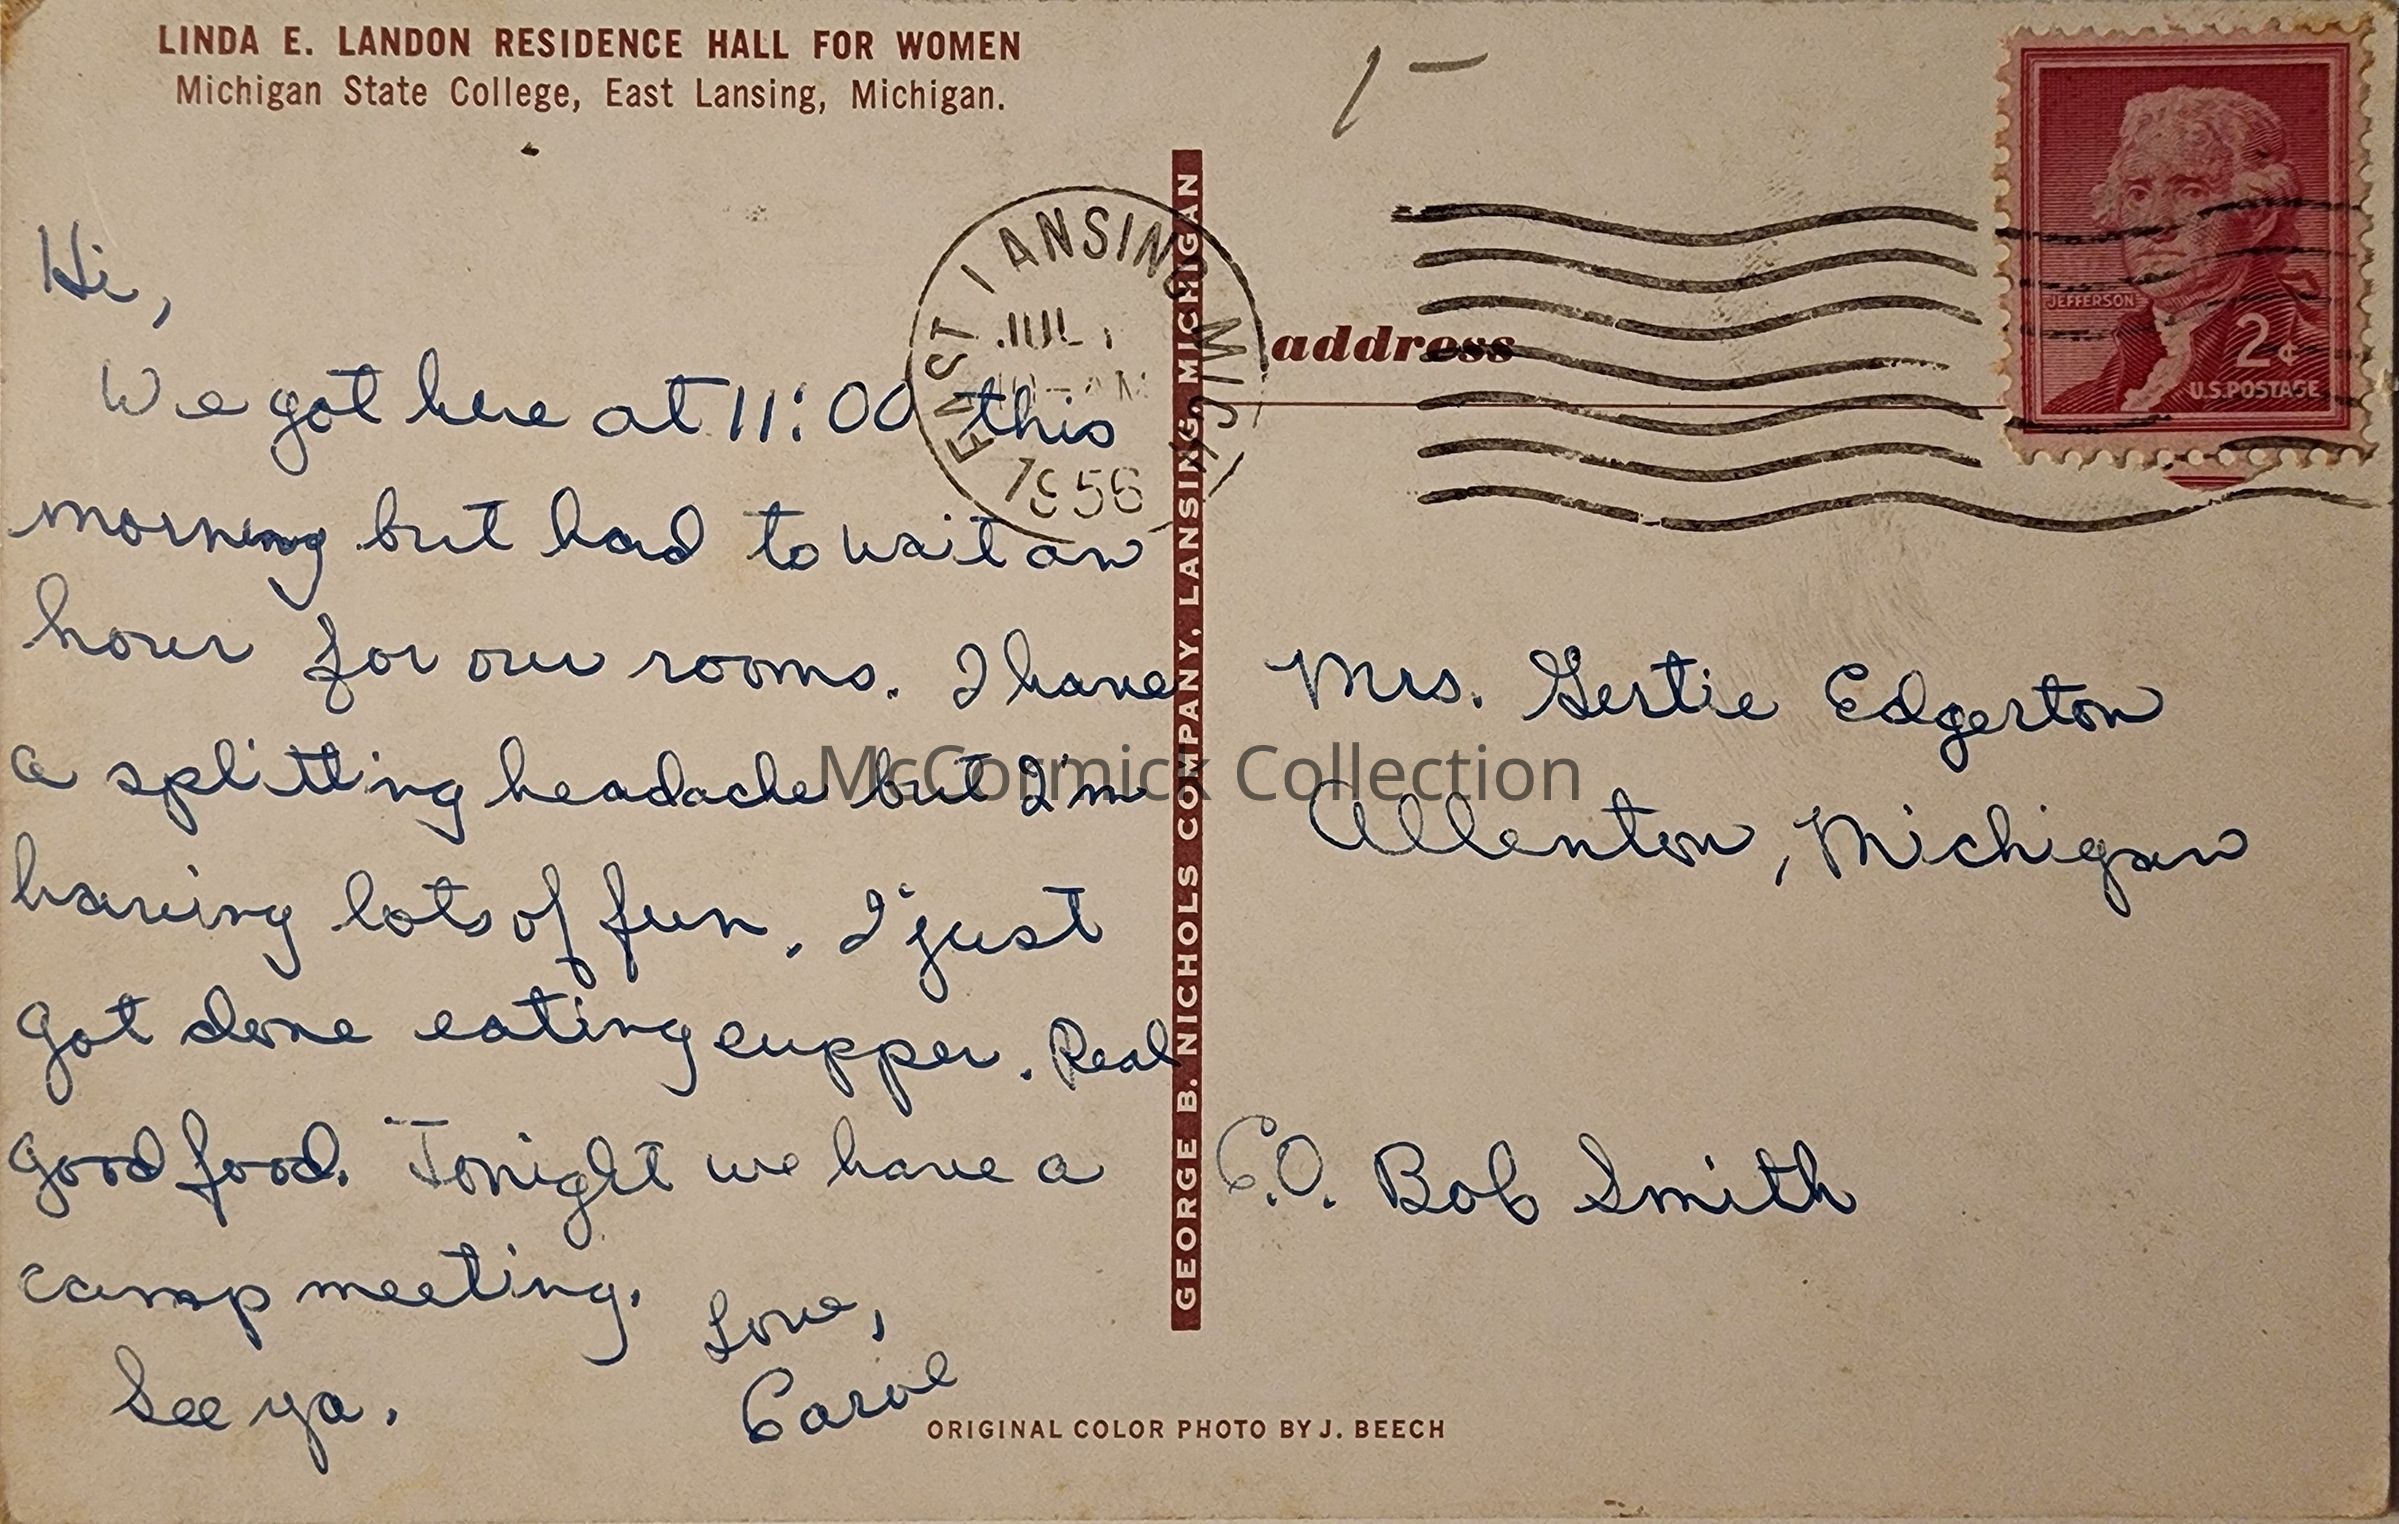 LINDA E. LANDON RESIDENCE HALL FOR WOMEN
Michigan State College, East Lansing, Michigan.
1-
Hi,
We got here at 11:00 this
morning but had to wait an
hour for our rooms. I have
a splitting headache but I'm
having lots of fun. I just
got done eating supper. Real
good food. Tonight we have a
camp meeting.
See ya.
Love,
Carol
EAST LANSING MICH
JUL
AM
1956
GEORGE B. NICHOLS COMPANY, LANSING, MICHIGAN
address
JEFFERSON
2¢
U.S. POSTAGE
Mrs. Gertie Edgerton
Allenton, Michigan
C.O. Bob Smith
ORIGINAL COLOR PHOTO BY J. BEECH
McCormick Collection